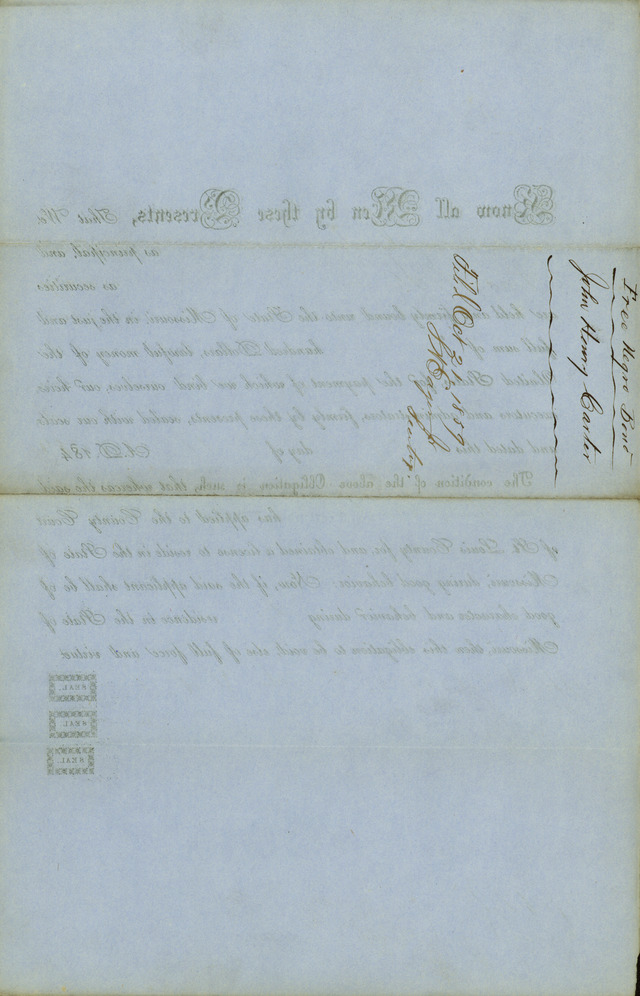 Free Negro Bond
John Henry Carter
Fild Oct 1859
Know all Men by these Presents, That We
as principal, and
as securities
held and firmly bound unto the State of Missouri, in the just and
full sum of hundred Dollars, lawful money of the
United States, the payment of which we bind ourselves, our heirs,
executors and administrators, firmly by these presents, sealed with our seals
and dated this day of A.D. 184
The condition of the above Obligation is such, that whereas the said
has applied to the County Court
of St. Louis County for, and obtained a license to reside in the State of
Missouri, during good behavior: Now, if the said applicant shall be of
good character and behavior during residence in the State of
Missouri, then this obligation to be void, else of full force and virtue.
SEAL.
SEAL.
SEAL.